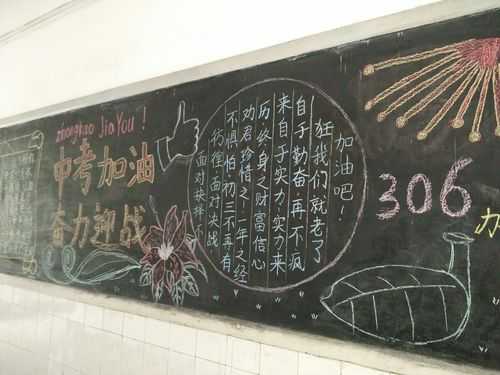 zhongkao JiaYou!
中考加油
奋力迎战
面对抉择不
彷徨,面对决战,
不惧怕.初三不再有
劝君珍惜之.一年之经
历终身之财富信心
来自于实力.实力来
自于勤奋.再不疯
狂我们就老了
加油吧!
306
办